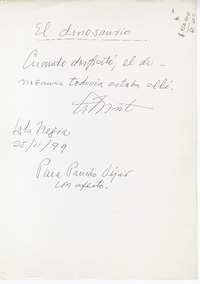 El dinosaurio
Cuando despertó, el di-
nosaurio todavía estaba allí.
Isla Negra
25/11/99
Para Pancho Véjar
con afecto.